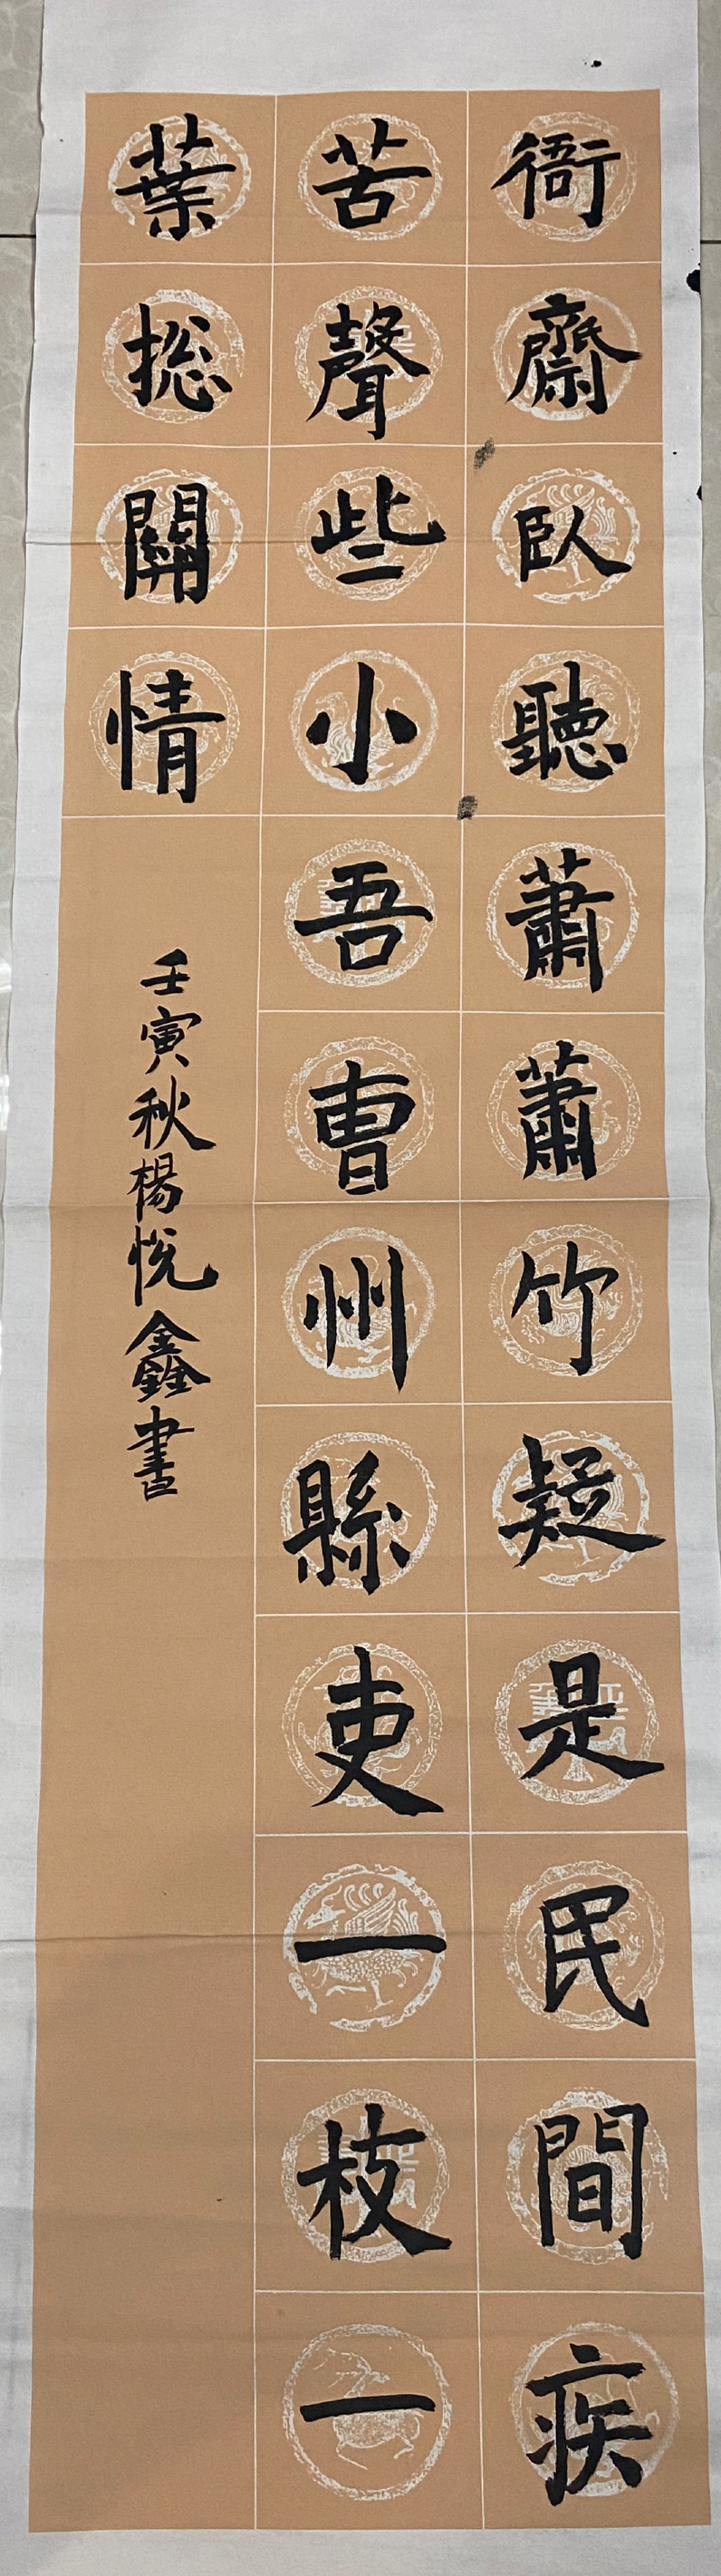 衙齋臥聽蕭蕭竹疑是民間疾
苦聲些小吾曹州縣吏一枝一
葉総關情
壬寅秋楊悅鑫書